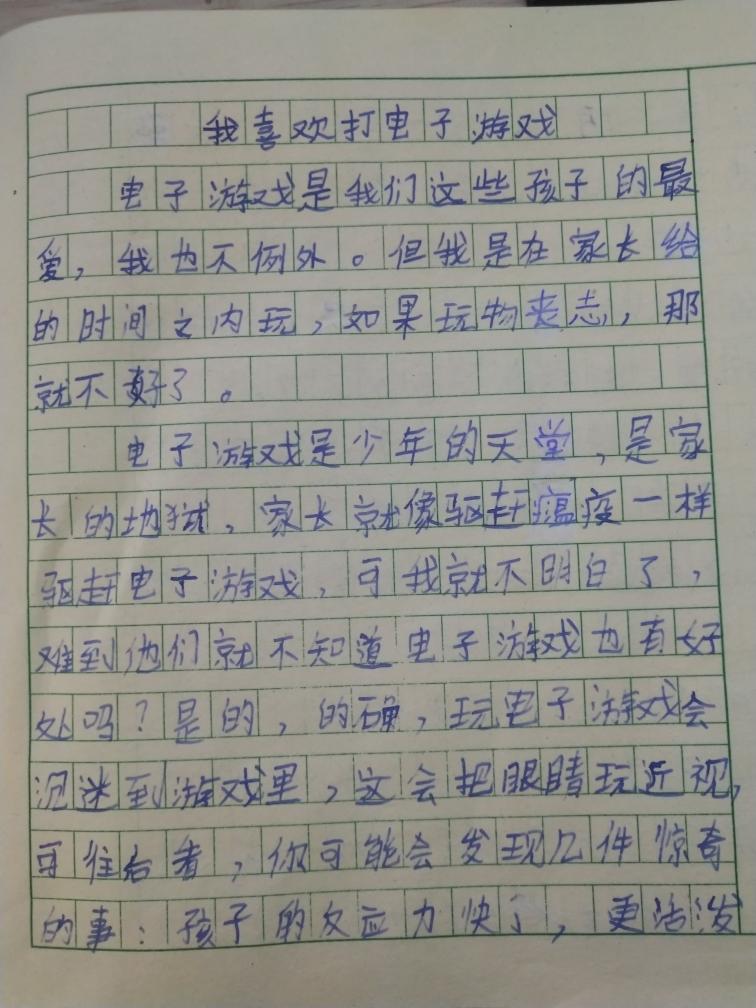 我喜欢打电子游戏
电子游戏是我们这些孩子的最
爱，我也不例外。但我是在家长给
的时间之内玩，如果玩物丧志，那
就不好了。
电子游戏是少年的天堂，是家
长的地狱，家长就像驱赶瘟疫一样
驱赶电子游戏，可我就不明白了，
难到他们就不知道电子游戏也有好
处吗？是的，的确，玩电子游戏会
沉迷到游戏里，这会把眼睛玩近视，
可往后看，你可能会发现几件惊奇
的事：孩子的反应力快了，更活泼